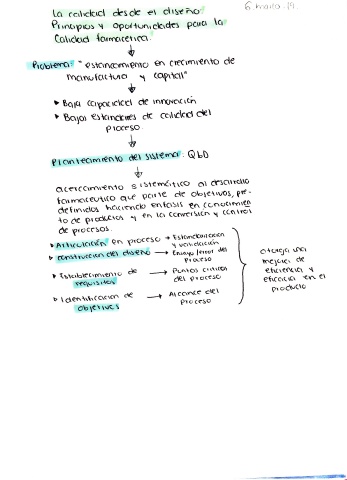 La calidad desde el diseño:
6. marzo. 19.
Principios y oportunidades para la
Calidad farmacéutica.
Problema: "estancamiento en crecimiento de
manufactura y capital"
▸ Baja capacidad de innovación
▸ Bajos estandares de calidad del
proceso.
Planteamiento del sistema: QbD
acercamiento sistemático al desarrollo
farmaceutico que parte de objetivos, pre-
definidos haciendo enfasis en conocimien
to de productos y en la conversion y control
de procesos.
▸ Articulación en proceso → Estandarización
y validación
▸ construccion del diseño → Ensayo/error del
Proceso
▸ Establecimiento de → Puntos criticos
requisitos del proceso
▸ Identificacion de → Alcance del
objetivos proceso
otorga una
mejora de
eficiencia y
eficacia en el
producto